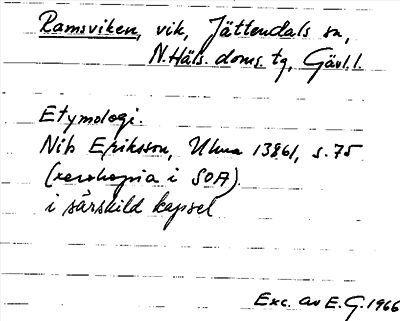 Ramsviken, vik, Jättendals sn,
N. Häls. doms. tg, Gävl. l.
Etymologi.
Nils Eriksson, Uhma 13861, s. 75
(xerokopia i SOA)
i särskild kapsel
Exc. av E. G. 1966